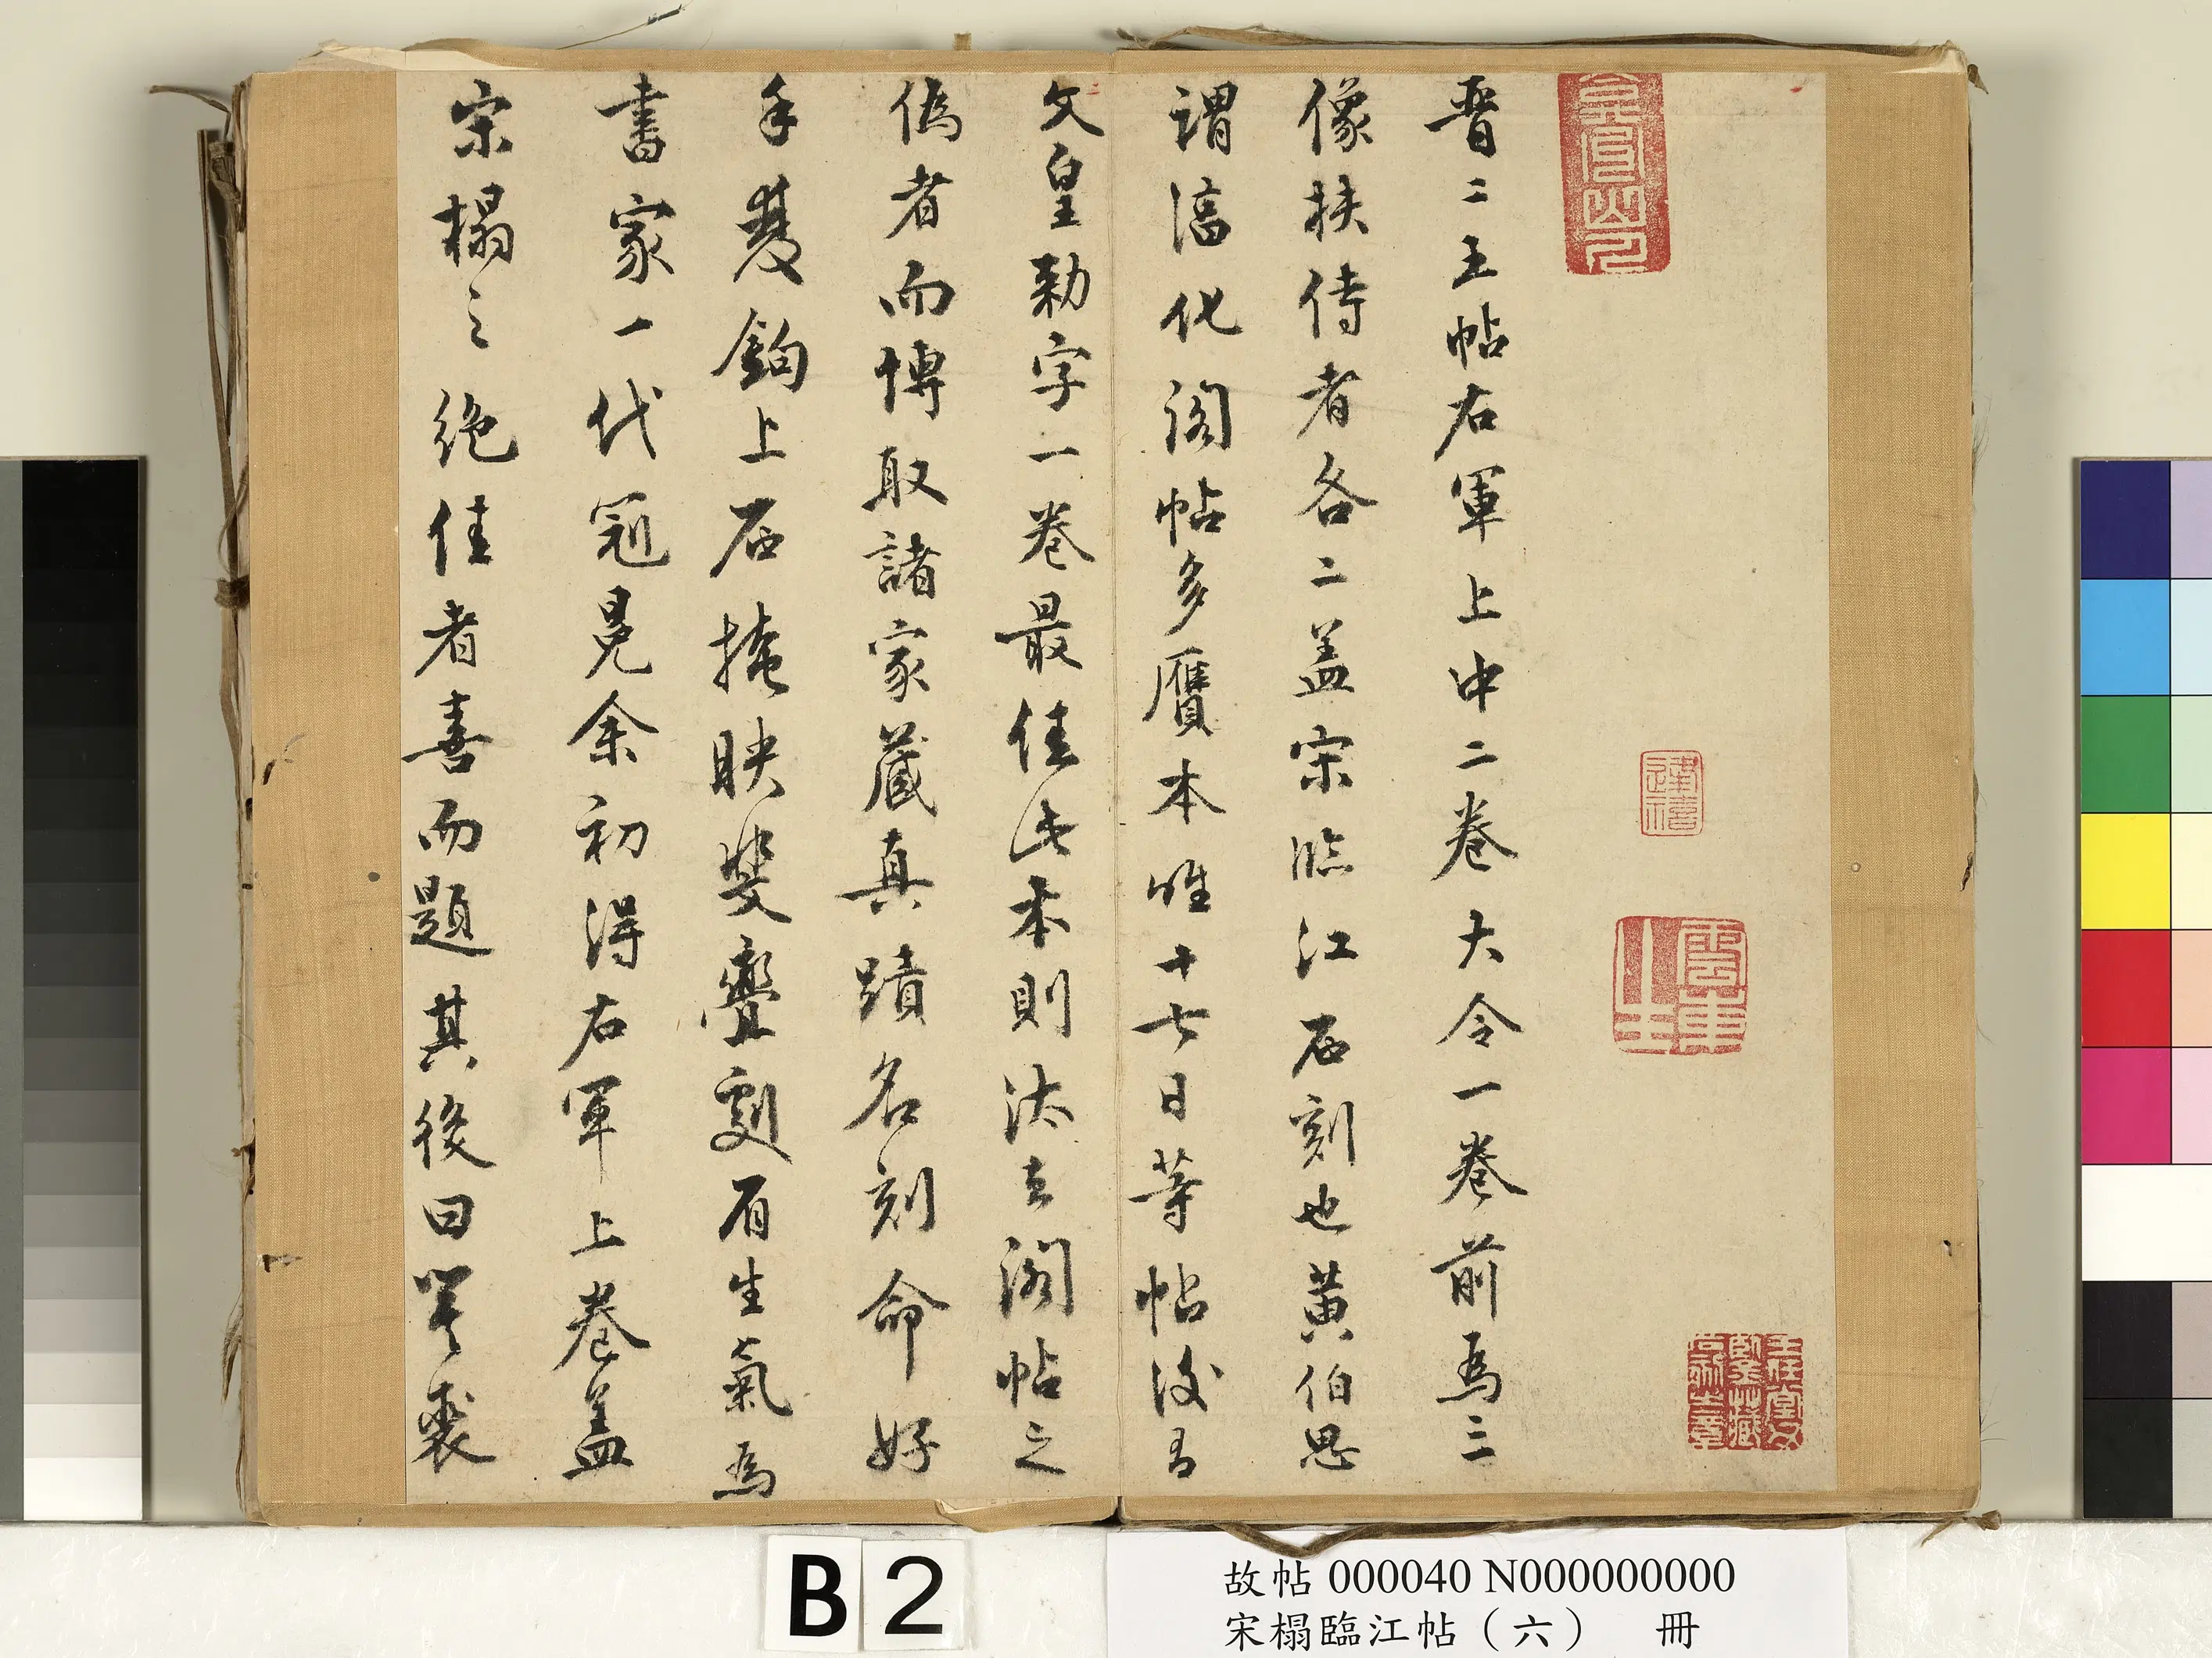 晉二王帖右軍上中二卷大令一卷前爲三
像扶侍者各二盖宋臨江石刻也黄伯思
謂淳化閣帖多贋本惟十七日等帖後有
文皇勅字一卷最佳此本則汰去閣帖之
僞者而博取諸家藏真蹟名刻命好
手雙鉤上石掩映斐亹劇有生氣爲
書家一代冠冕余初得右軍上卷盖
宋榻之絶佳者喜而題其後曰裴
B 2
故帖 000040 N000000000
宋榻臨江帖（六） 冊